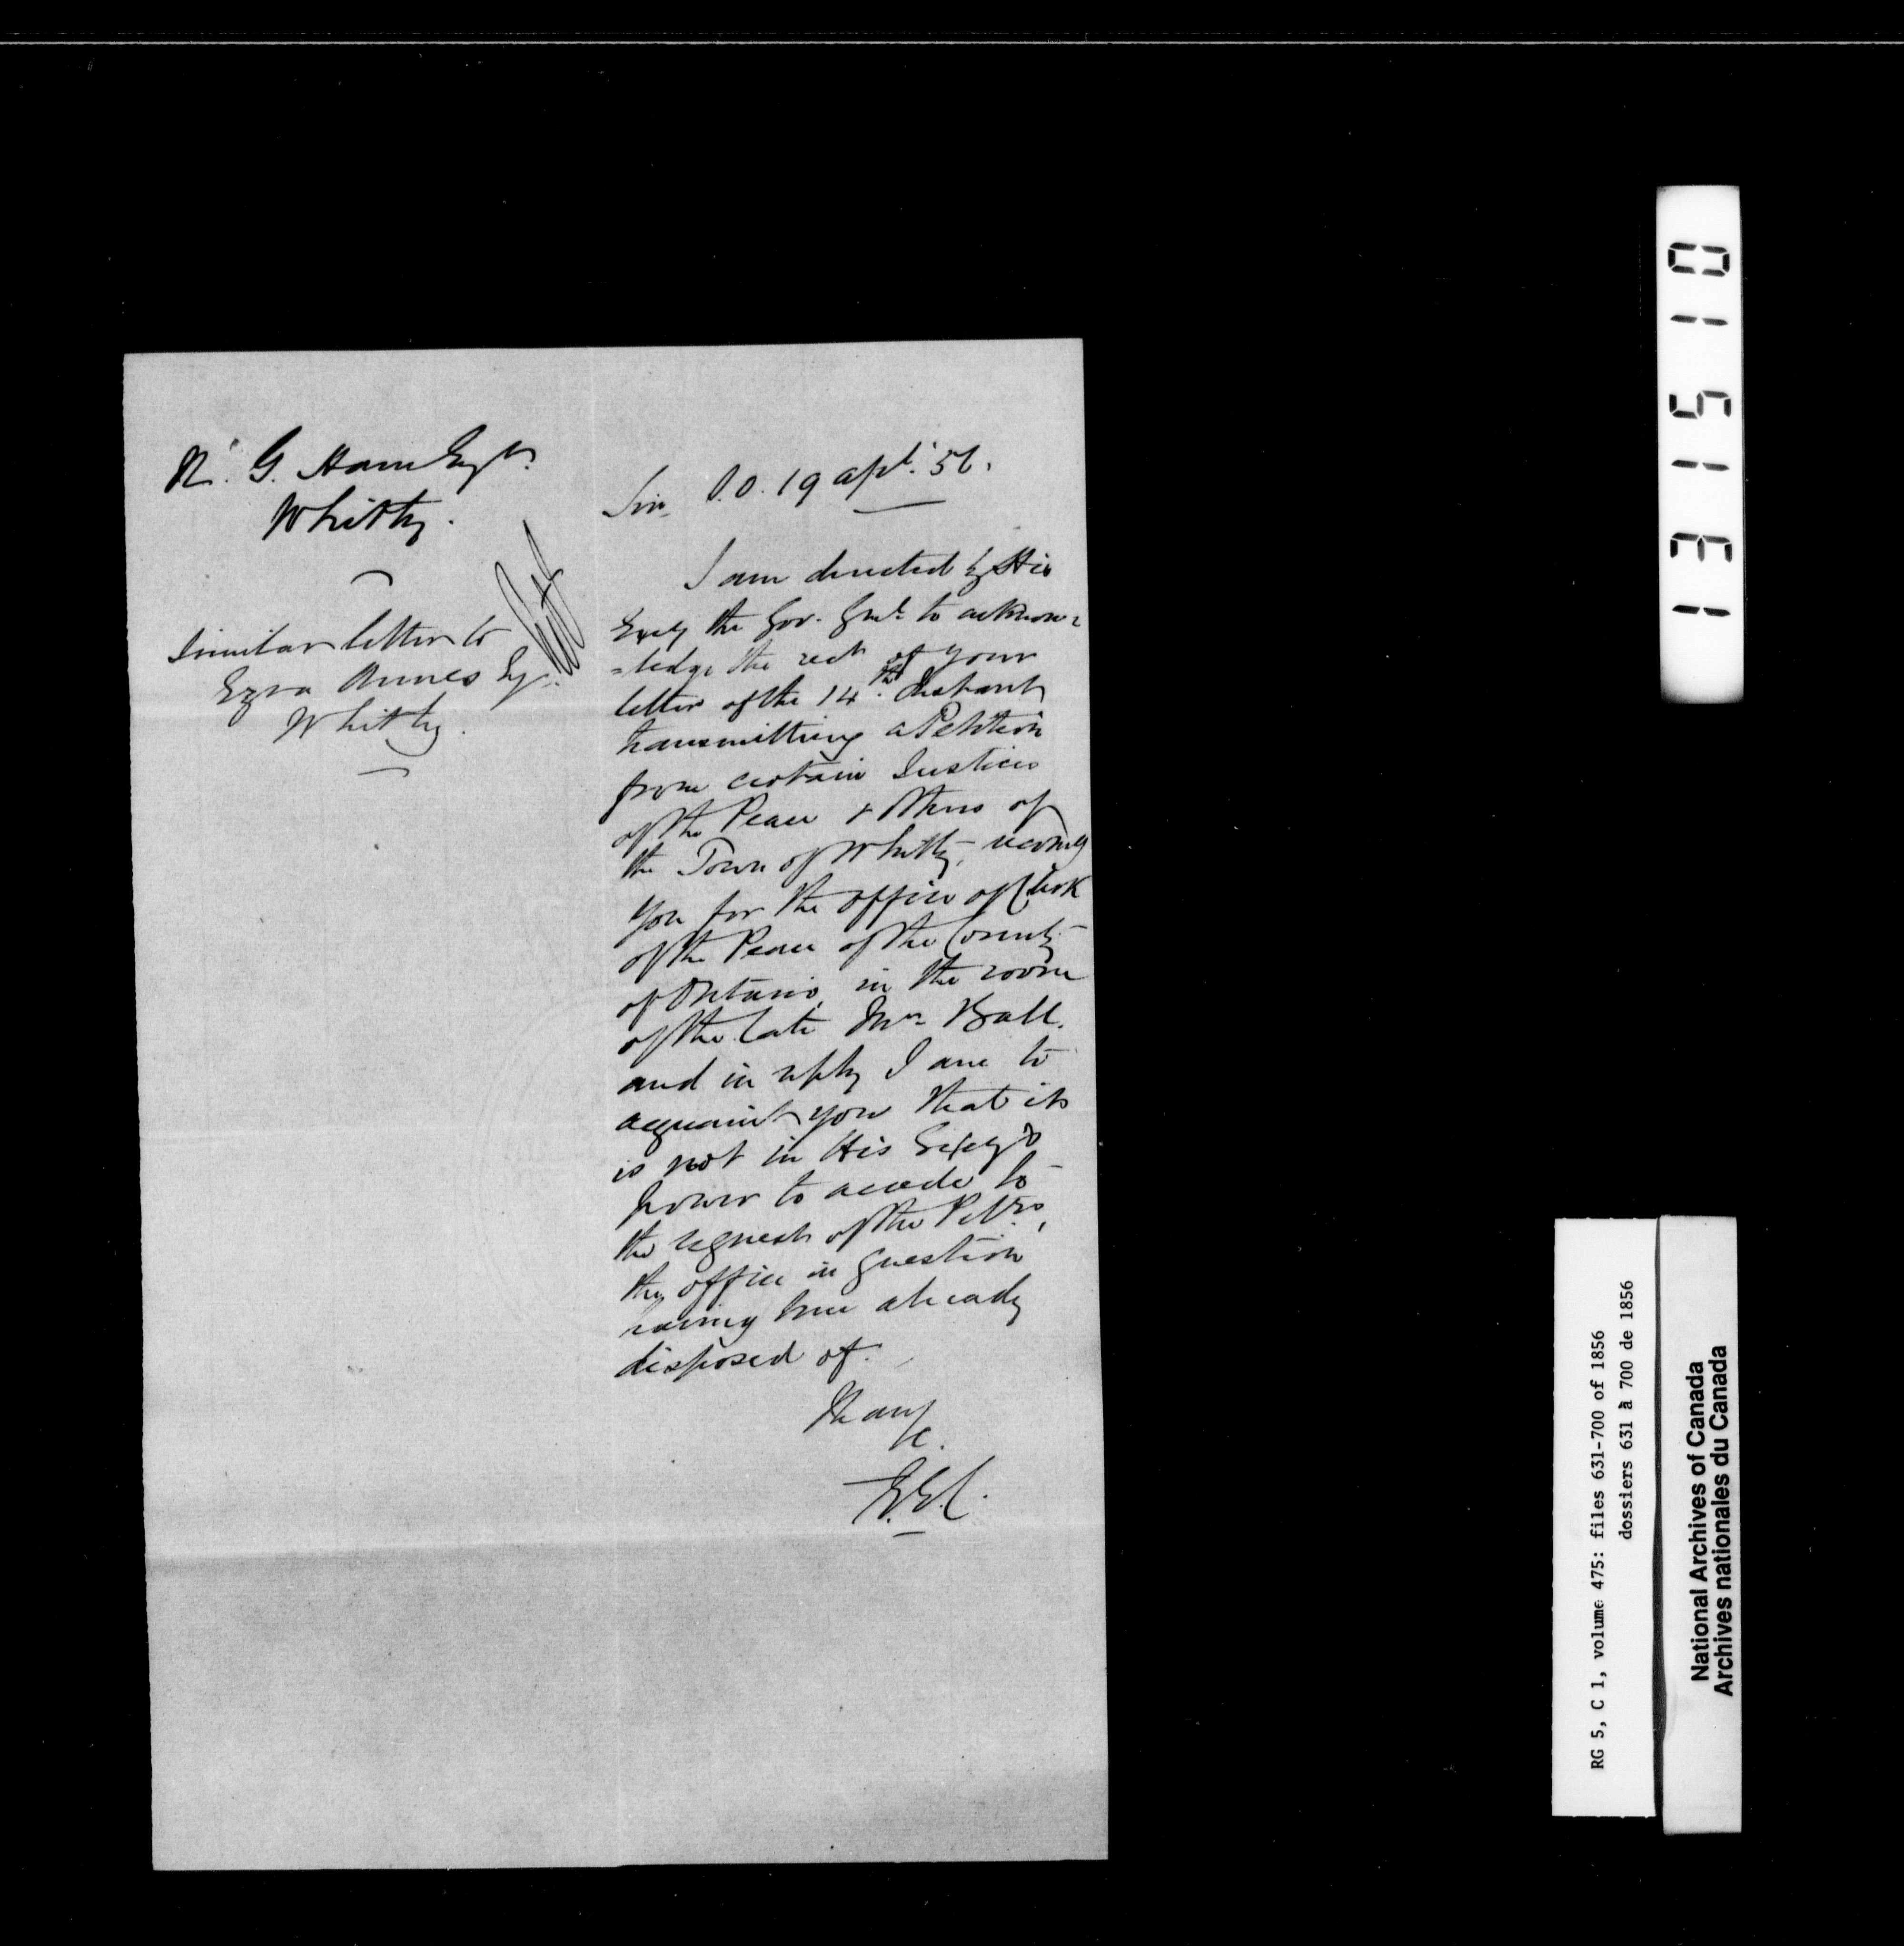 N. G. Ham Esqr.
Whitby.
Similar letter to
Ezra Annes Esq.
Whitby.
Sir, S.O. 19 Apl. 56.
I am directed by His
Excy the Gov. Genl. to acknow=
=ledge the rect. of your
letter of the 14th. Instant
transmitting a Petition
from certain Justices
of the Peace & others of
the Town of Whitby, recomg
you for the office of Clerk
of the Peace of the County
of Ontario, in the room
of the late Mr. Ball.
and in reply I am to
acquaint you that it
is not in His Excy's
power to accede to
the request of the Petrs,
the office in question
having been already
disposed of.
I have
&c.
E.E.C.
131510
RG 5, C 1, volume 475: files 631-700 of 1856
dossiers 631 à 700 de 1856
National Archives of Canada
Archives nationales du Canada